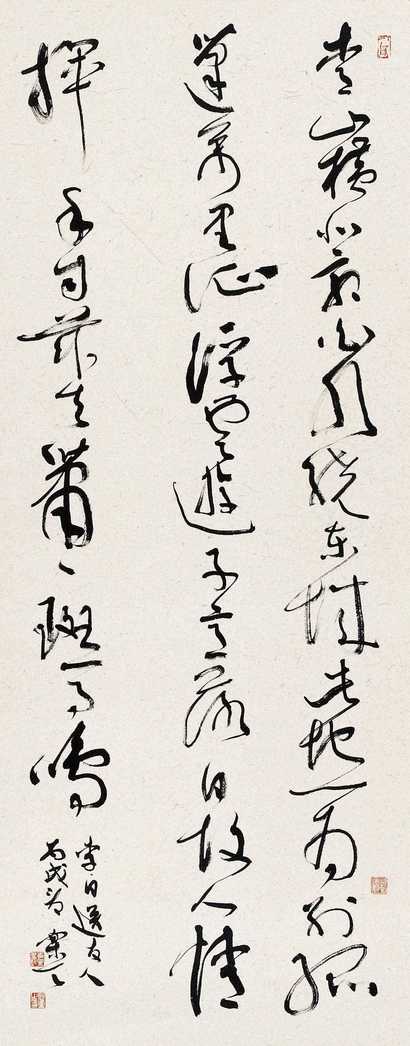 青山横北郭白水绕东城此地一为别孤
蓬万里征浮云游子意落日故人情
挥手自兹去萧萧班马鸣
李白送友人
丙戌